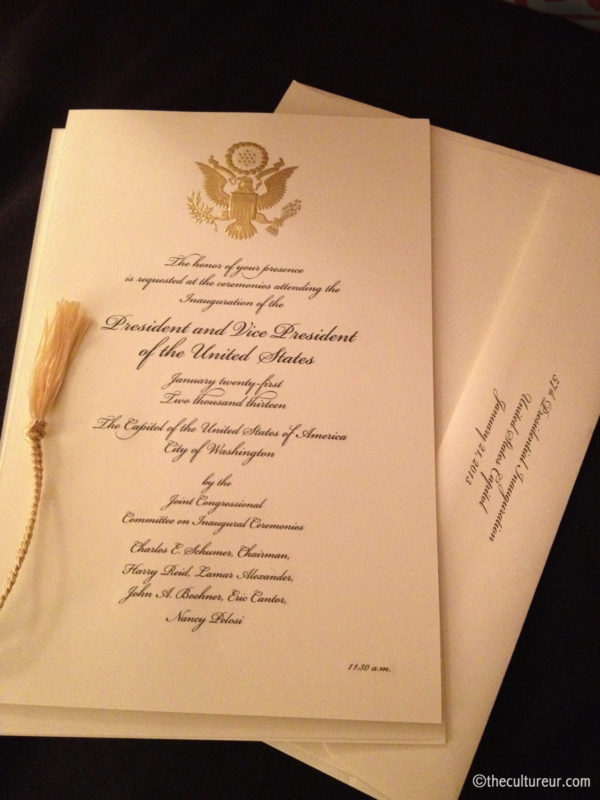 The honor of your presence
is requested at the ceremonies attending the
Inauguration of the
President and Vice President
of the United States
January twenty-first
Two thousand thirteen
The Capitol of the United States of America
City of Washington
by the
Joint Congressional
Committee on Inaugural Ceremonies
Charles E. Schumer, Chairman,
Harry Reid, Lamar Alexander,
John A. Boehner, Eric Cantor,
Nancy Pelosi
11:30 a.m.
57th Presidential Inauguration
United States Capitol
January 21, 2013
©thecultureur.com